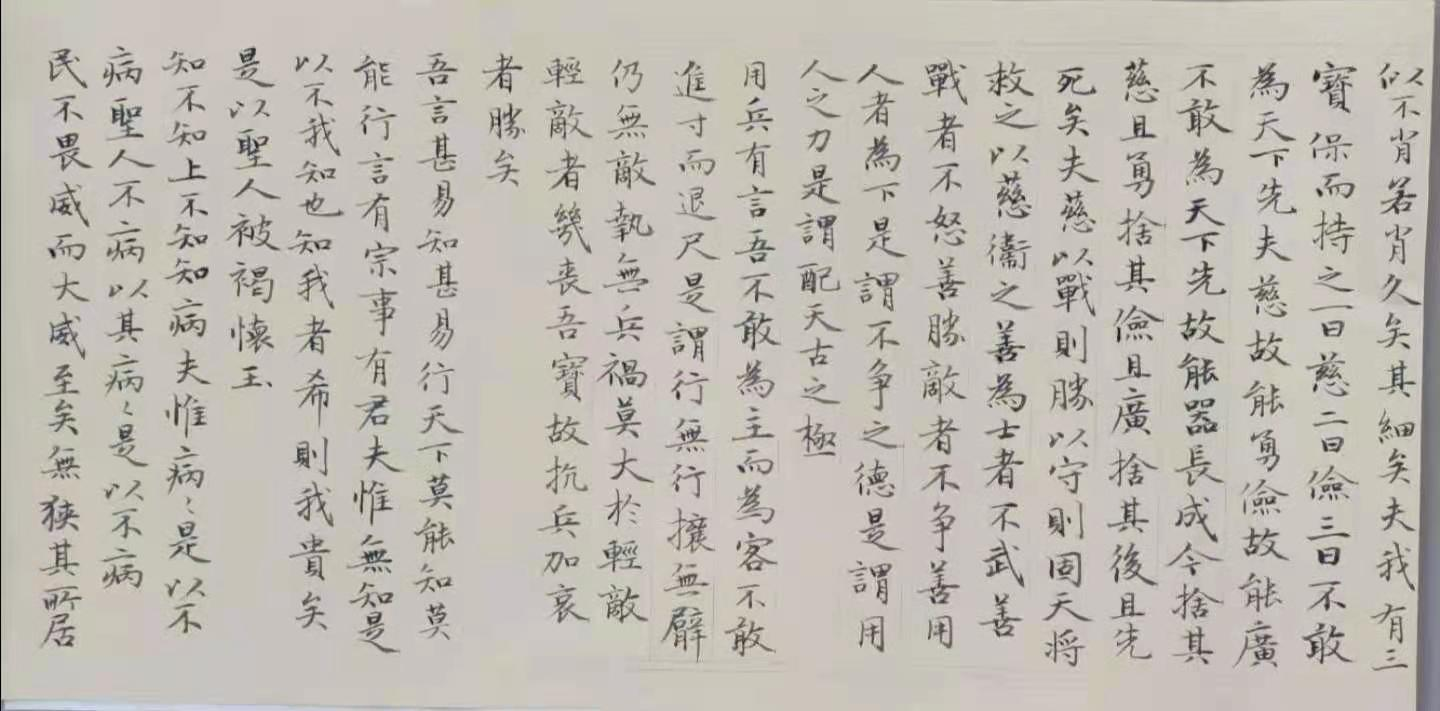 似不肖若肖久矣其細矣夫我有三
寶保而持之一曰慈二曰儉三曰不敢
為天下先夫慈故能勇儉故能廣
不敢為天下先故能器長成今捨其
慈且勇捨其儉且廣捨其後且先
死矣夫慈以戰則勝以守則固天将
救之以慈衞之善為士者不武善
戰者不怒善勝敵者不争善用
人者為下是謂不争之德是謂用
人之力是謂配天古之極
用兵有言吾不敢為主而為客不敢
進寸而退尺是謂行無行攘無臂
仍無敵執無兵禍莫大於輕敵
輕敵者幾喪吾寶故抗兵加哀
者勝矣
吾言甚易知甚易行天下莫能知莫
能行言有宗事有君夫惟無知是
以不我知也知我者希則我貴矣
是以聖人被褐懷玉
知不知上不知知病夫惟病〻是以不
病聖人不病以其病〻是以不病
民不畏威而大威至矣無狹其所居